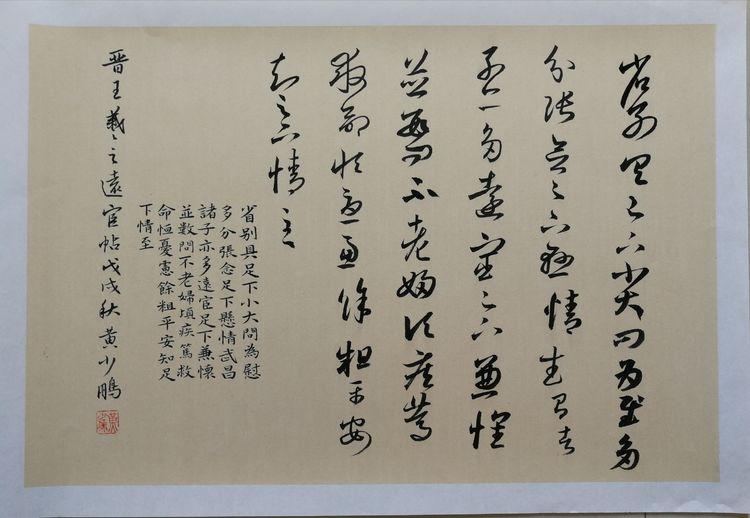 省別具足下小大問為慰多
分張念足下懸情武昌諸
子亦多遠宦足下兼懷
並數問不老婦頃疾篤
救命恒憂慮餘粗平安
知足下情至
省別具足下小大問為慰
多分張念足下懸情武昌
諸子亦多遠宦足下兼懷
並數問不老婦頃疾篤救
命恒憂慮餘粗平安知足
下情至
晋王羲之遠宦帖戊戌秋黄少鵬